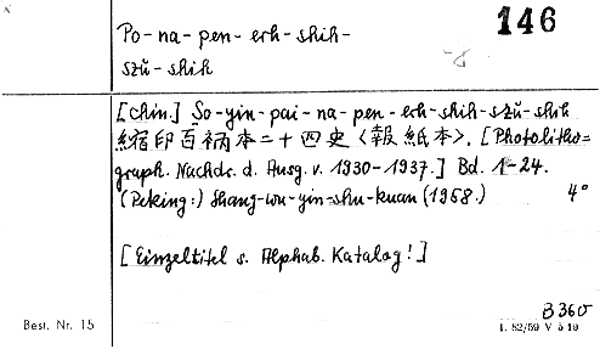 146
Po-na-pen-erh-shih-
szŭ-shih
[chin.] So-yin-pai-na-pen-erh-shih-szŭ-shih
縮印百衲本二十四史〈報紙本〉. [Photolitho=
graph. Nachdr. d. Ausg. v. 1930-1937.] Bd. 1-24.
(Peking:) Shang-wu-yin-shu-kuan (1958.) 4°
[Einzeltitel s. Alphab. Katalog!]
B 360
Best. Nr. 15
1. 82/59 V 5 19